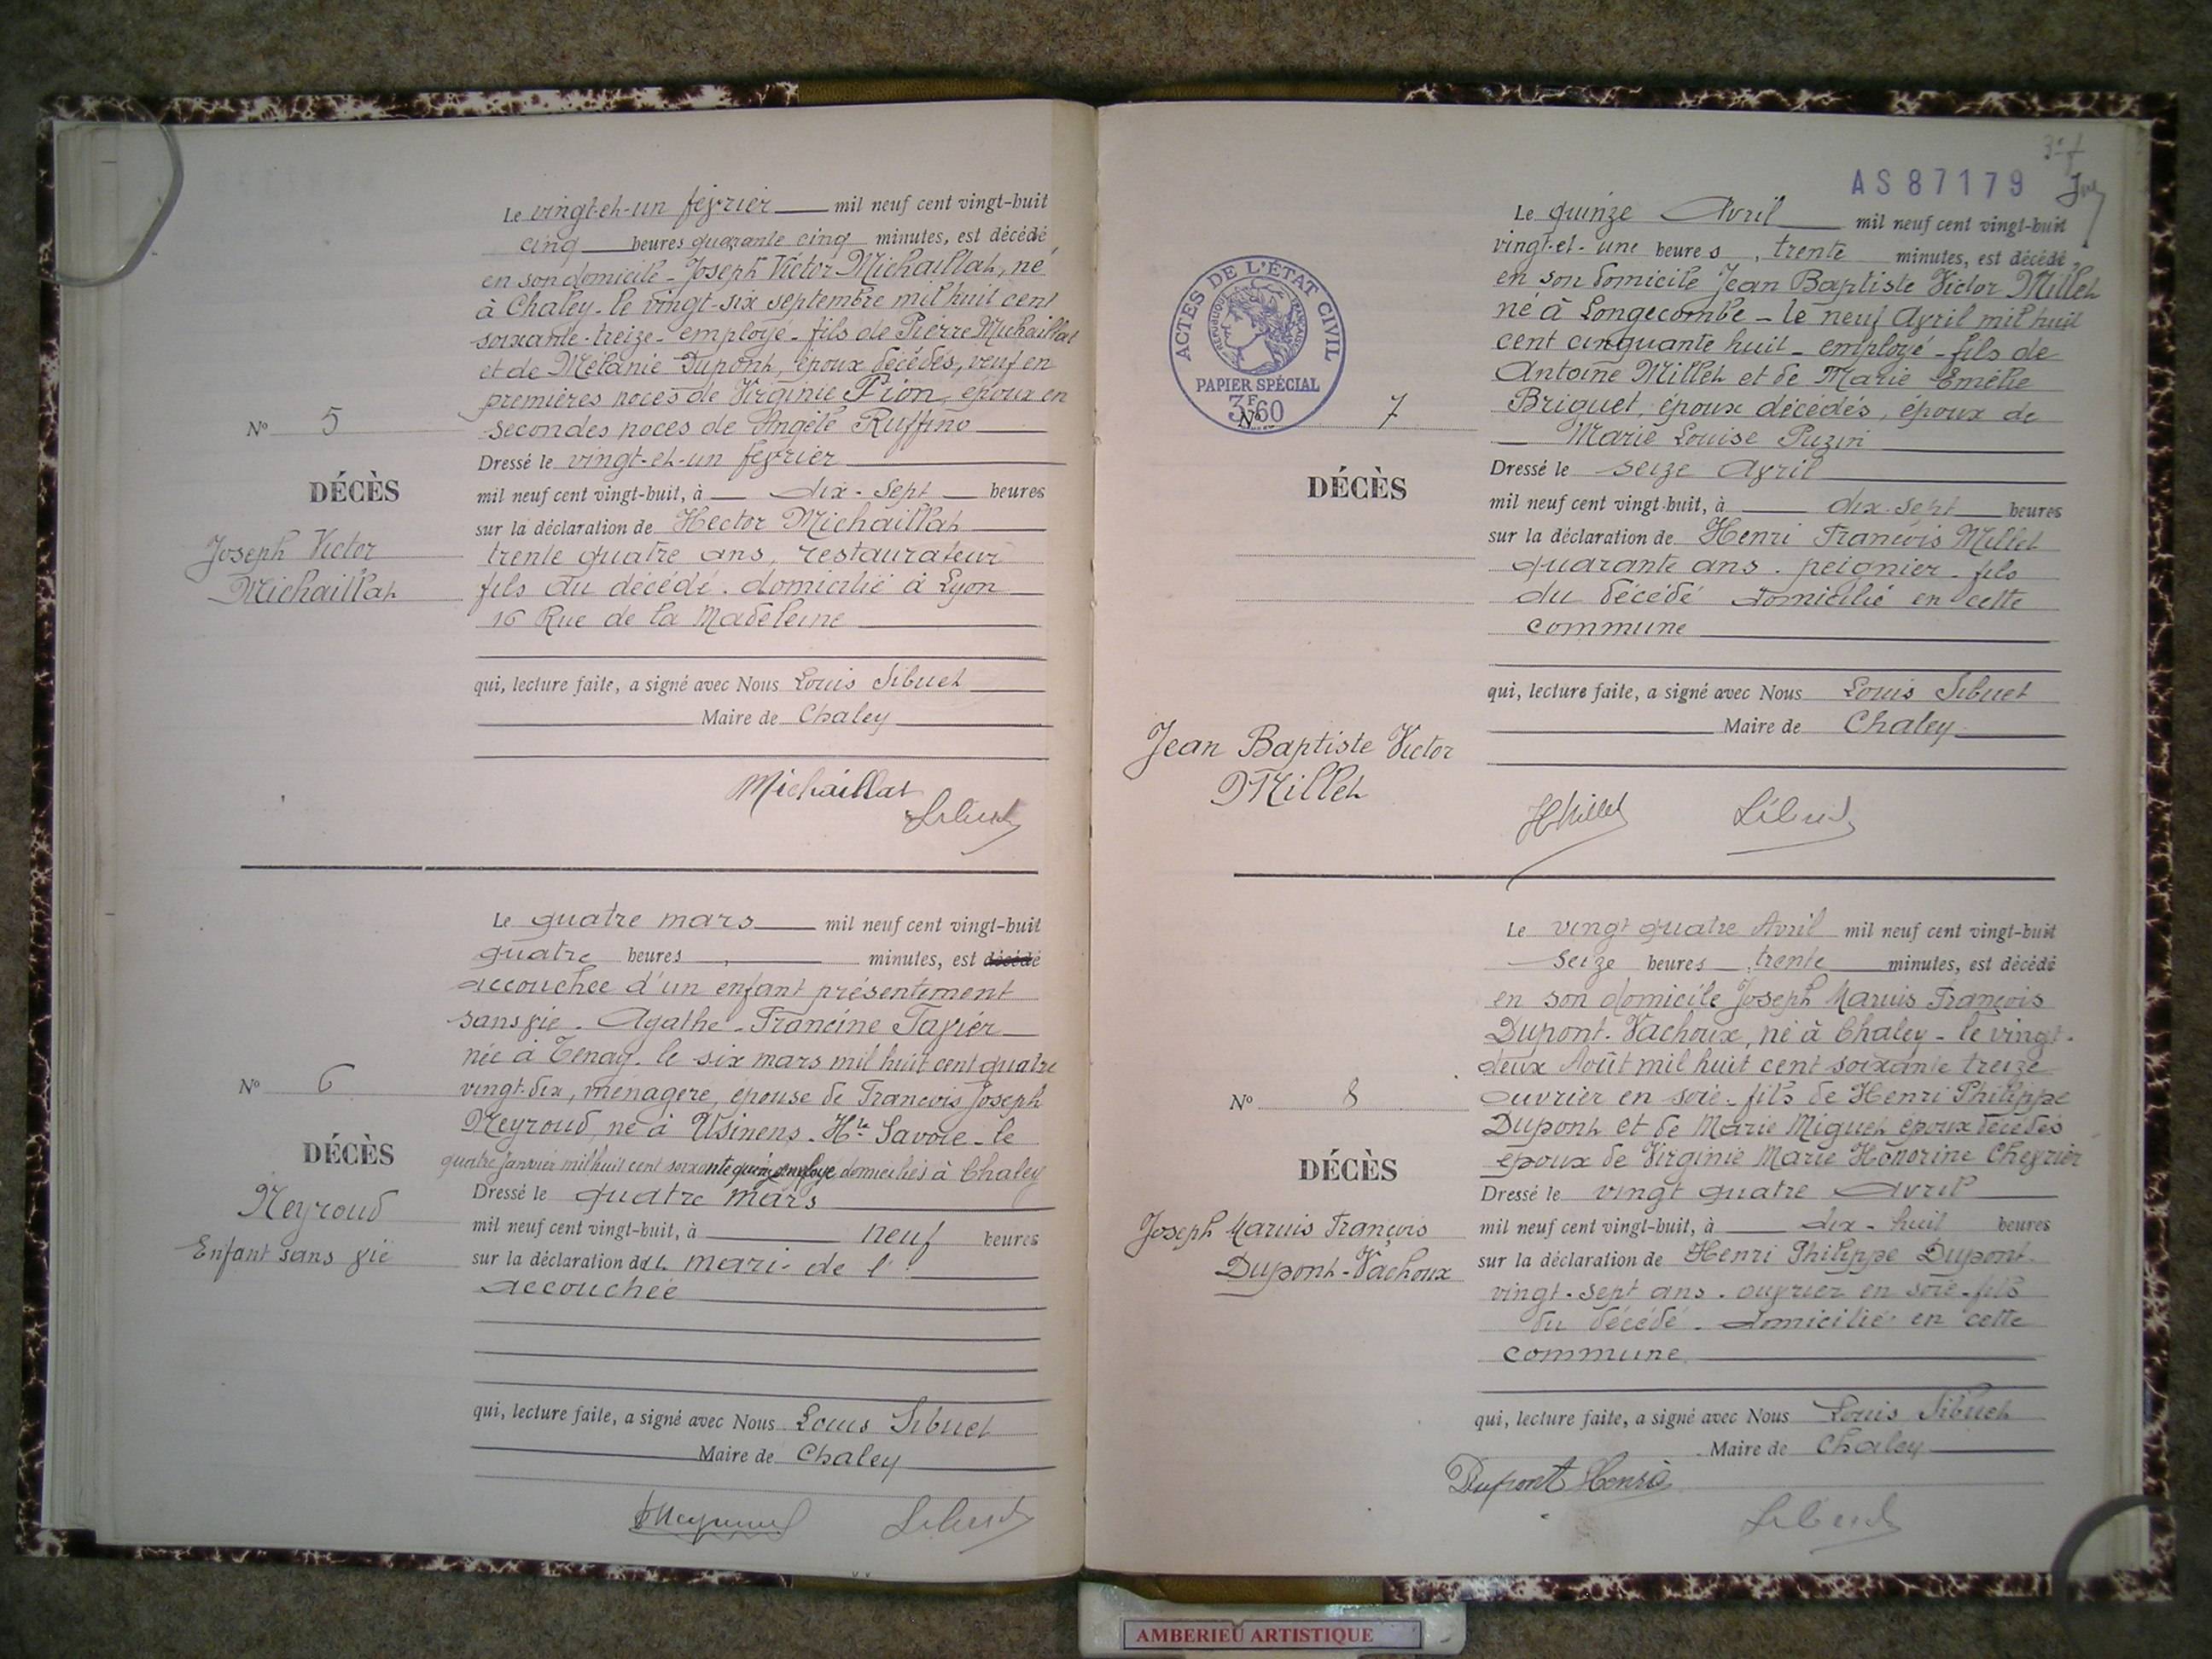 Le vingt-et-un février mil neuf cent vingt-huit
cinq heures quarante cinq minutes, est décédé
en son domicile - Joseph Victor Michaillat, né
à Chaley - le vingt-six septembre mil huit cent
soixante-treize - employé - fils de Pierre Michaillat
et de Mélanie Dupont, époux décédés, veuf en
premières noces de Virginie Pion, époux en
secondes noces de Angèle Ruffino
Nº 5
DÉCÈS
Joseph Victor
Michaillat
Dressé le vingt-et-un février
mil neuf cent vingt-huit, à dix-sept heures
sur la déclaration de Hector Michaillat
trente quatre ans, restaurateur
fils du décédé. domicilié à Lyon
16 Rue de la Madeleine
qui, lecture faite, a signé avec Nous Louis Sibuet
Maire de Chaley
Michaillat
Sibuet
Le quatre mars mil neuf cent vingt-huit
quatre heures minutes, est décédé
accouchée d'un enfant présentement
sans vie. Agathe - Francine Tavier
née à Tenay - le six mars mil huit cent quatre
vingt-dix, ménagère, épouse de François Joseph
Neyroud, né à Usinens - Hte Savoie - le
quatre janvier mil huit cent soixante quinze employé domiciliés à Chaley
Nº 6
DÉCÈS
Neyroud
Enfant sans vie
Dressé le quatre mars
mil neuf cent vingt-huit, à neuf heures
sur la déclaration du mari de l'
accouchée
qui, lecture faite, a signé avec Nous Louis Sibuet
Maire de Chaley
Sibuet
AS 87179
ACTES DE L'ÉTAT CIVIL
RÉPUBLIQUE FRANÇAISE
PAPIER SPÉCIAL
3F60
Le quinze Avril mil neuf cent vingt-huit
vingt-et-une heures, trente minutes, est décédé
en son domicile Jean Baptiste Victor Millet
né à Longecombe - le neuf Avril mil huit
cent cinquante huit - employé - fils de
Antoine Millet et de Marie Emélie
Briguet, époux décédés, époux de
Marie Louise Puzin
Nº 7
DÉCÈS
Jean Baptiste Victor
Millet
Dressé le seize Avril
mil neuf cent vingt-huit, à dix-sept heures
sur la déclaration de Henri François Millet
quarante ans. peignier - fils
du décédé domicilié en cette
commune
qui, lecture faite, a signé avec Nous Louis Sibuet
Maire de Chaley
HMillet
Sibuet
Le vingt quatre Avril mil neuf cent vingt-huit
seize heures trente minutes, est décédé
en son domicile Joseph Maruis François
Dupont-Vachoux, né à Chaley - le vingt-
deux Août mil huit cent soixante treize
ouvrier en soie - fils de Henri Philippe
Dupont et de Marie Miguet époux décédés
époux de Virginie Marie Honorine Chevrier
Nº 8
DÉCÈS
Joseph Maruis François
Dupont-Vachoux
Dressé le vingt quatre avril
mil neuf cent vingt-huit, à dix-huit heures
sur la déclaration de Henri Philippe Dupont
vingt-sept ans. ouvrier en soie - fils
du décédé - domicilié en cette
commune
qui, lecture faite, a signé avec Nous Louis Sibuet
Maire de Chaley
Dupont Henri
Sibuet
AMBERIEU ARTISTIQUE